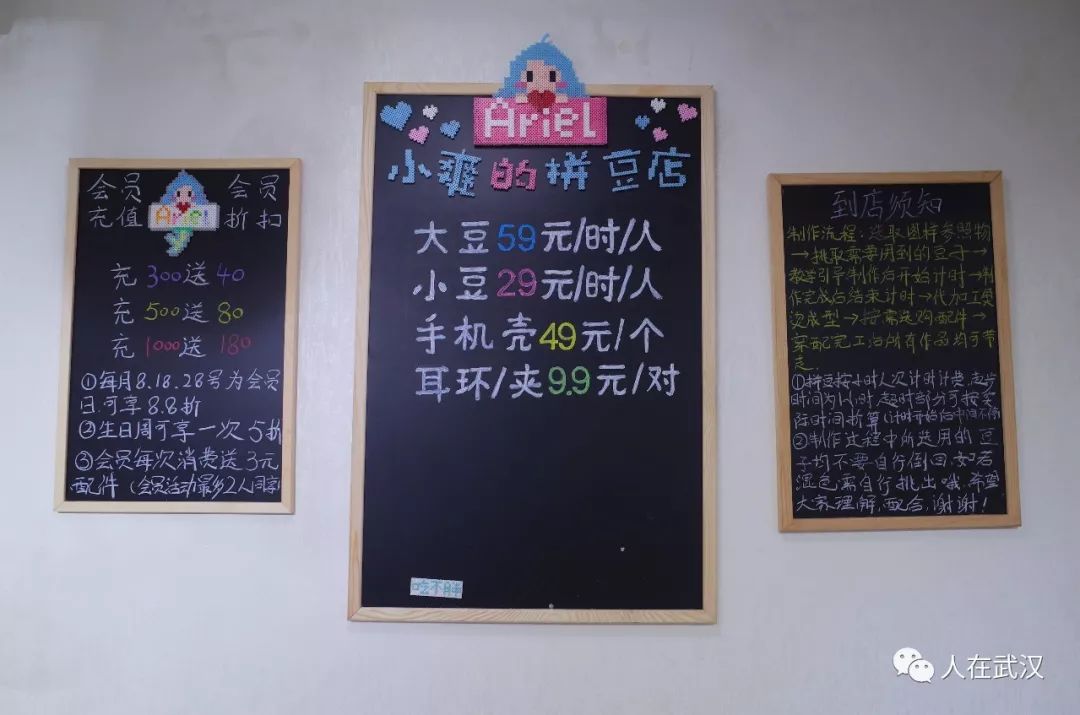 会员 会员
充值 Ariel 折扣
充300送40
充500送80
充1000送180
①每月8.18.28号为会员
日.可享8.8折
②生日周可享一次5折
③会员每次消费送3元
配件（会员活动最多2人同享）
Ariel
小爽的拼豆店
大豆59元/时/人
小豆29元/时/人
手机壳49元/个
耳环/夹9.9元/对
吃不胖
到店须知
制作流程：选取图样参照物
→挑取需要用到的豆子→
教学引导制作后开始计时→制
作完成后结束计时→代加工熨
烫成型→按需选购配件→
穿配完工后所有作品均可带
走.
①拼豆按小时人次计时计费.起步
时间为1小时.超时部分可按实
际时间折算(计时开始后中间不停
②制作过程中所选用的豆
子均不要自行倒回.如若
混色需自行挑出哦.希望
大家理解.配合.谢谢!
人在武汉